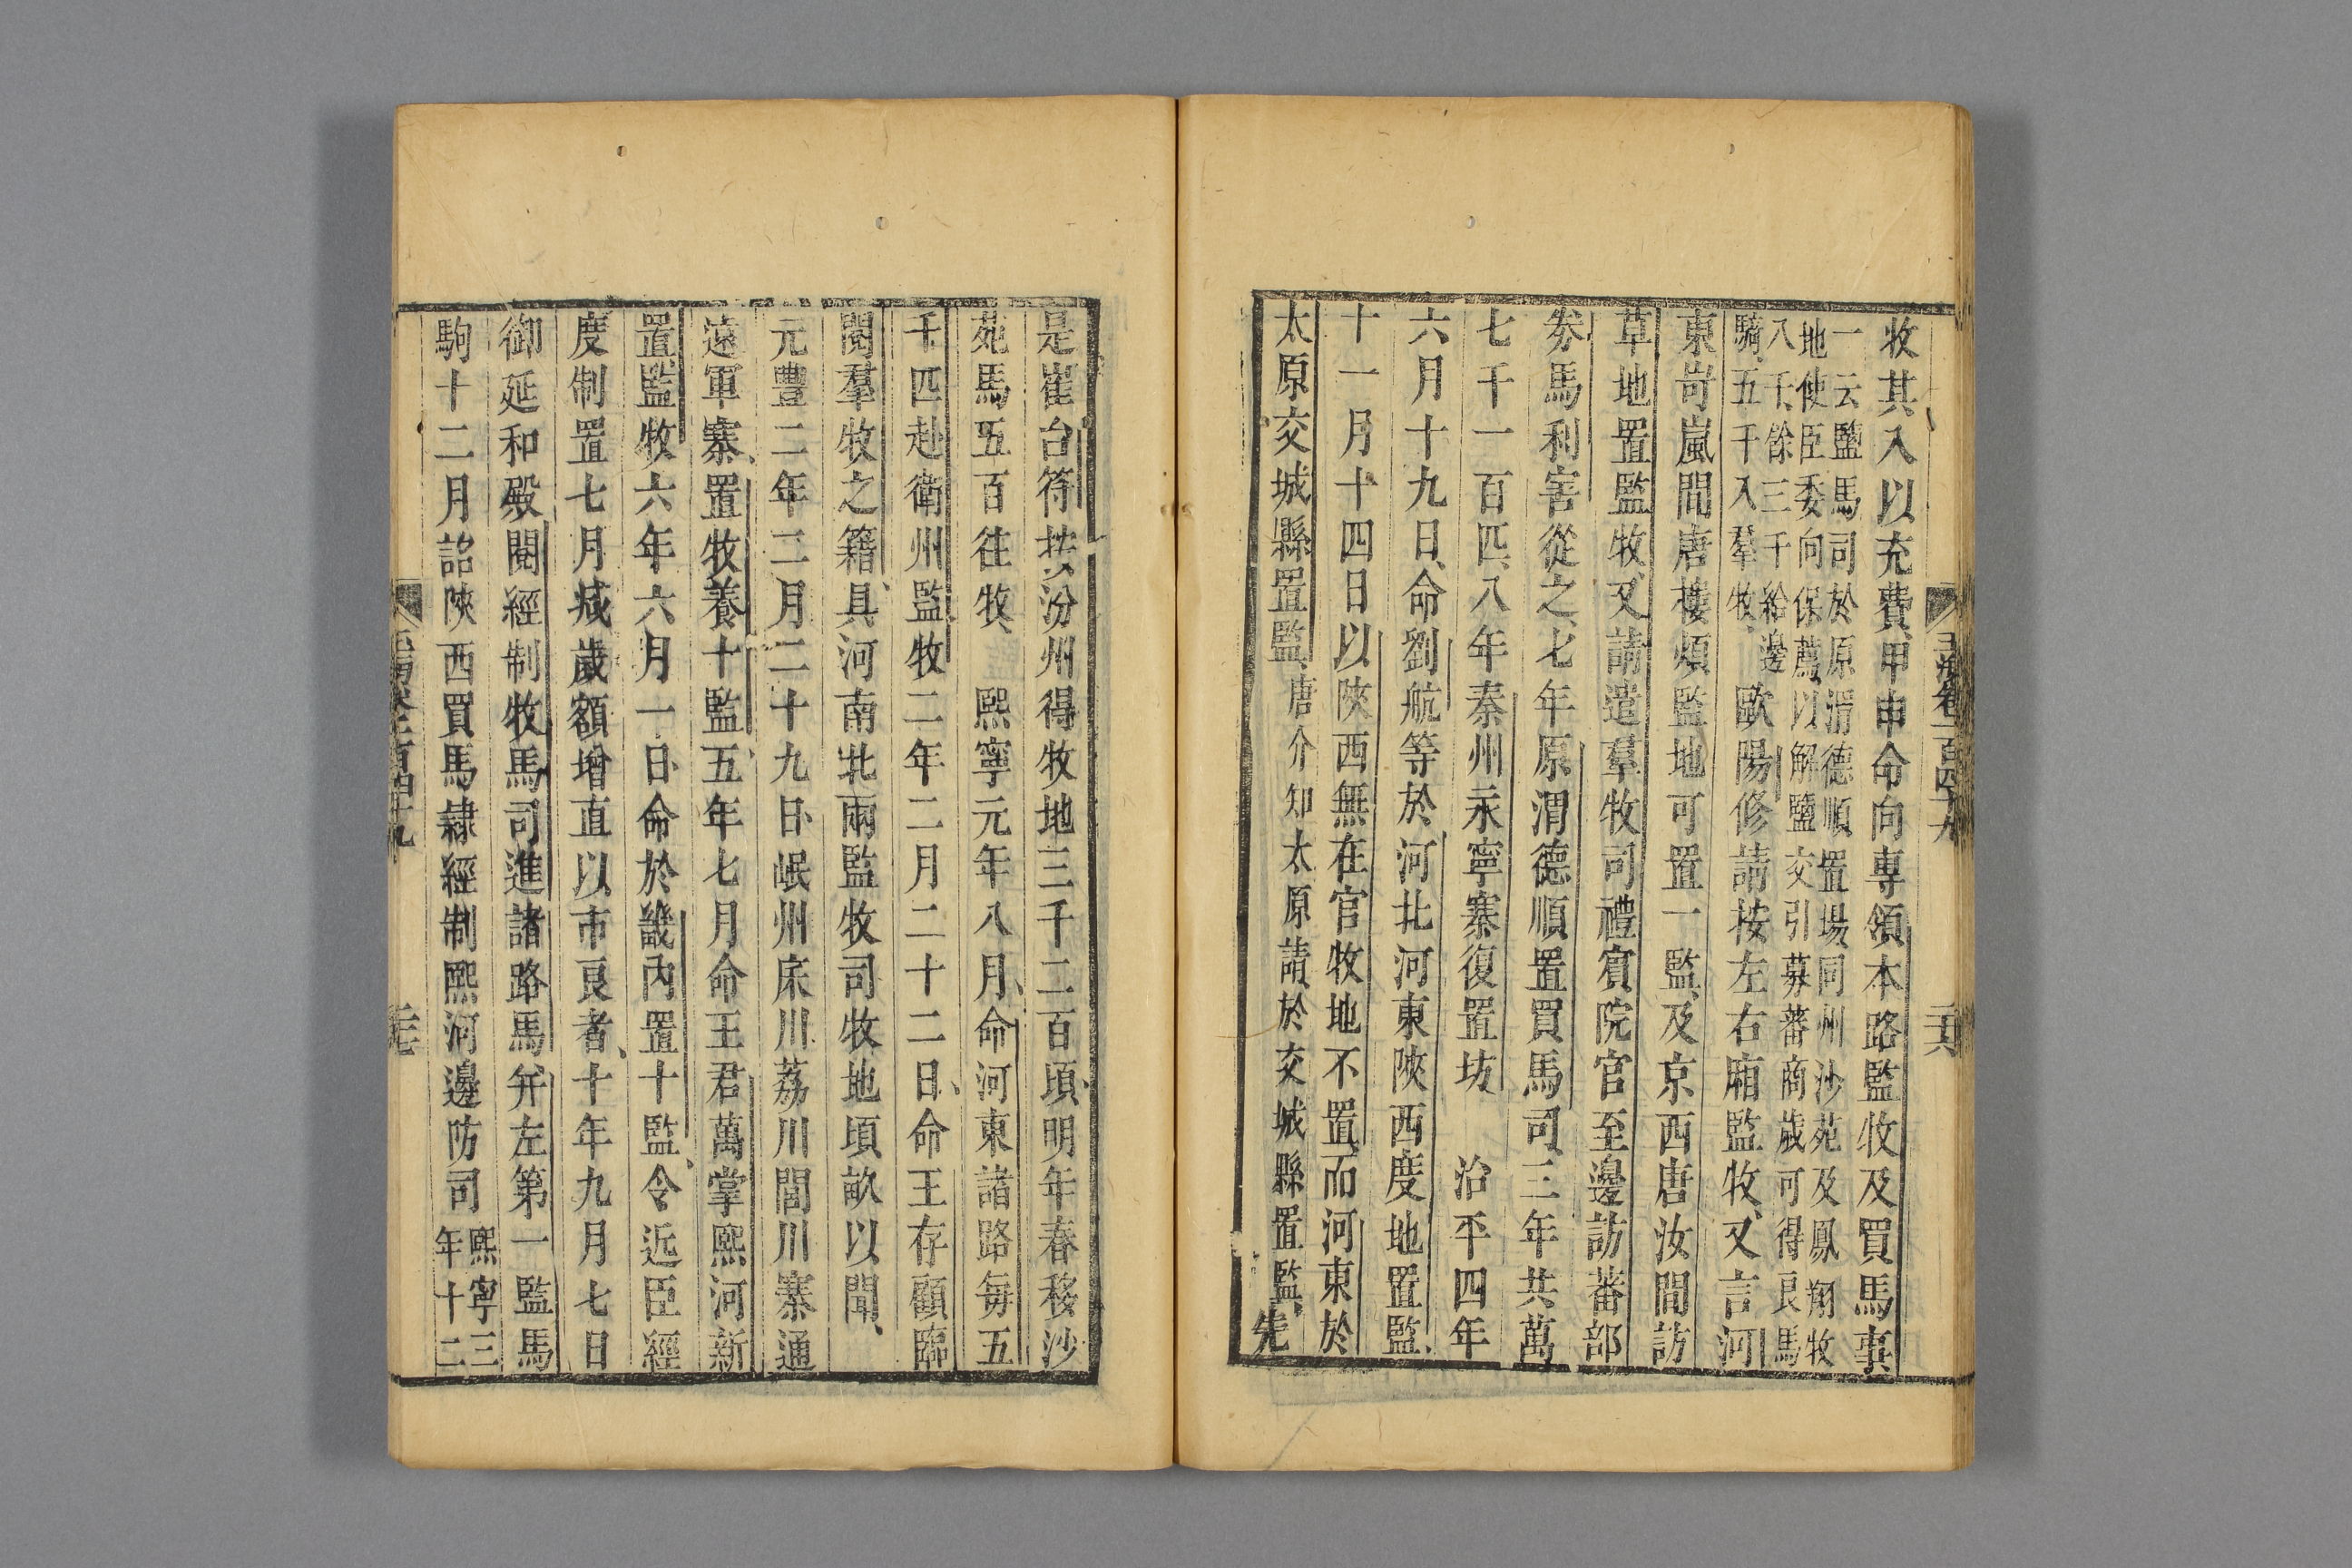 玉海卷一百四十九
二六
牧其入以充費甲申命向專領本路監牧及買馬事
一云鹽馬司於原渭德順置場同州沙苑及鳳翔牧
地使臣委向保薦以解鹽交引募蕃商歲可得良馬
八千餘三千給邊
騎五千入羣牧歐陽修請按左右廂監牧又言河
東岢嵐間唐樓煩監地可置一監及京西唐汝間訪
草地置監牧又請遣羣牧司禮賓院官至邊訪蕃部
券馬利害從之七年原渭德順置買馬司三年共萬
七千一百匹八年秦州永寧寨復置坊 治平四年
六月十九日命劉航等於河北河東陝西度地置監
十一月十四日以陝西無在官牧地不置而河東於
太原交城縣置監唐介知太原請於交城縣置監先
是崔台符按汾州得牧地三千二百頃明年春移沙
苑馬五百往牧 熙寧元年八月命河東諸路每五
千匹赴衛州監牧二年二月二十二日命王存顧臨
閱羣牧之籍具河南北兩監牧司牧地頃畝以聞
元豐二年二月二十九日岷州床川荔川閭川寨通
遠軍寨置牧養十監五年七月命王君萬掌熙河新
置監牧六年六月一日命於畿內置十監令近臣經
度制置七月減歲額增直以市良者十年九月七日
御延和殿閱經制牧馬司進諸路馬并左第一監馬
駒十二月詔陝西買馬隸經制熙河邊防司熙寧三
年十二
玉海卷一百四十九
二七